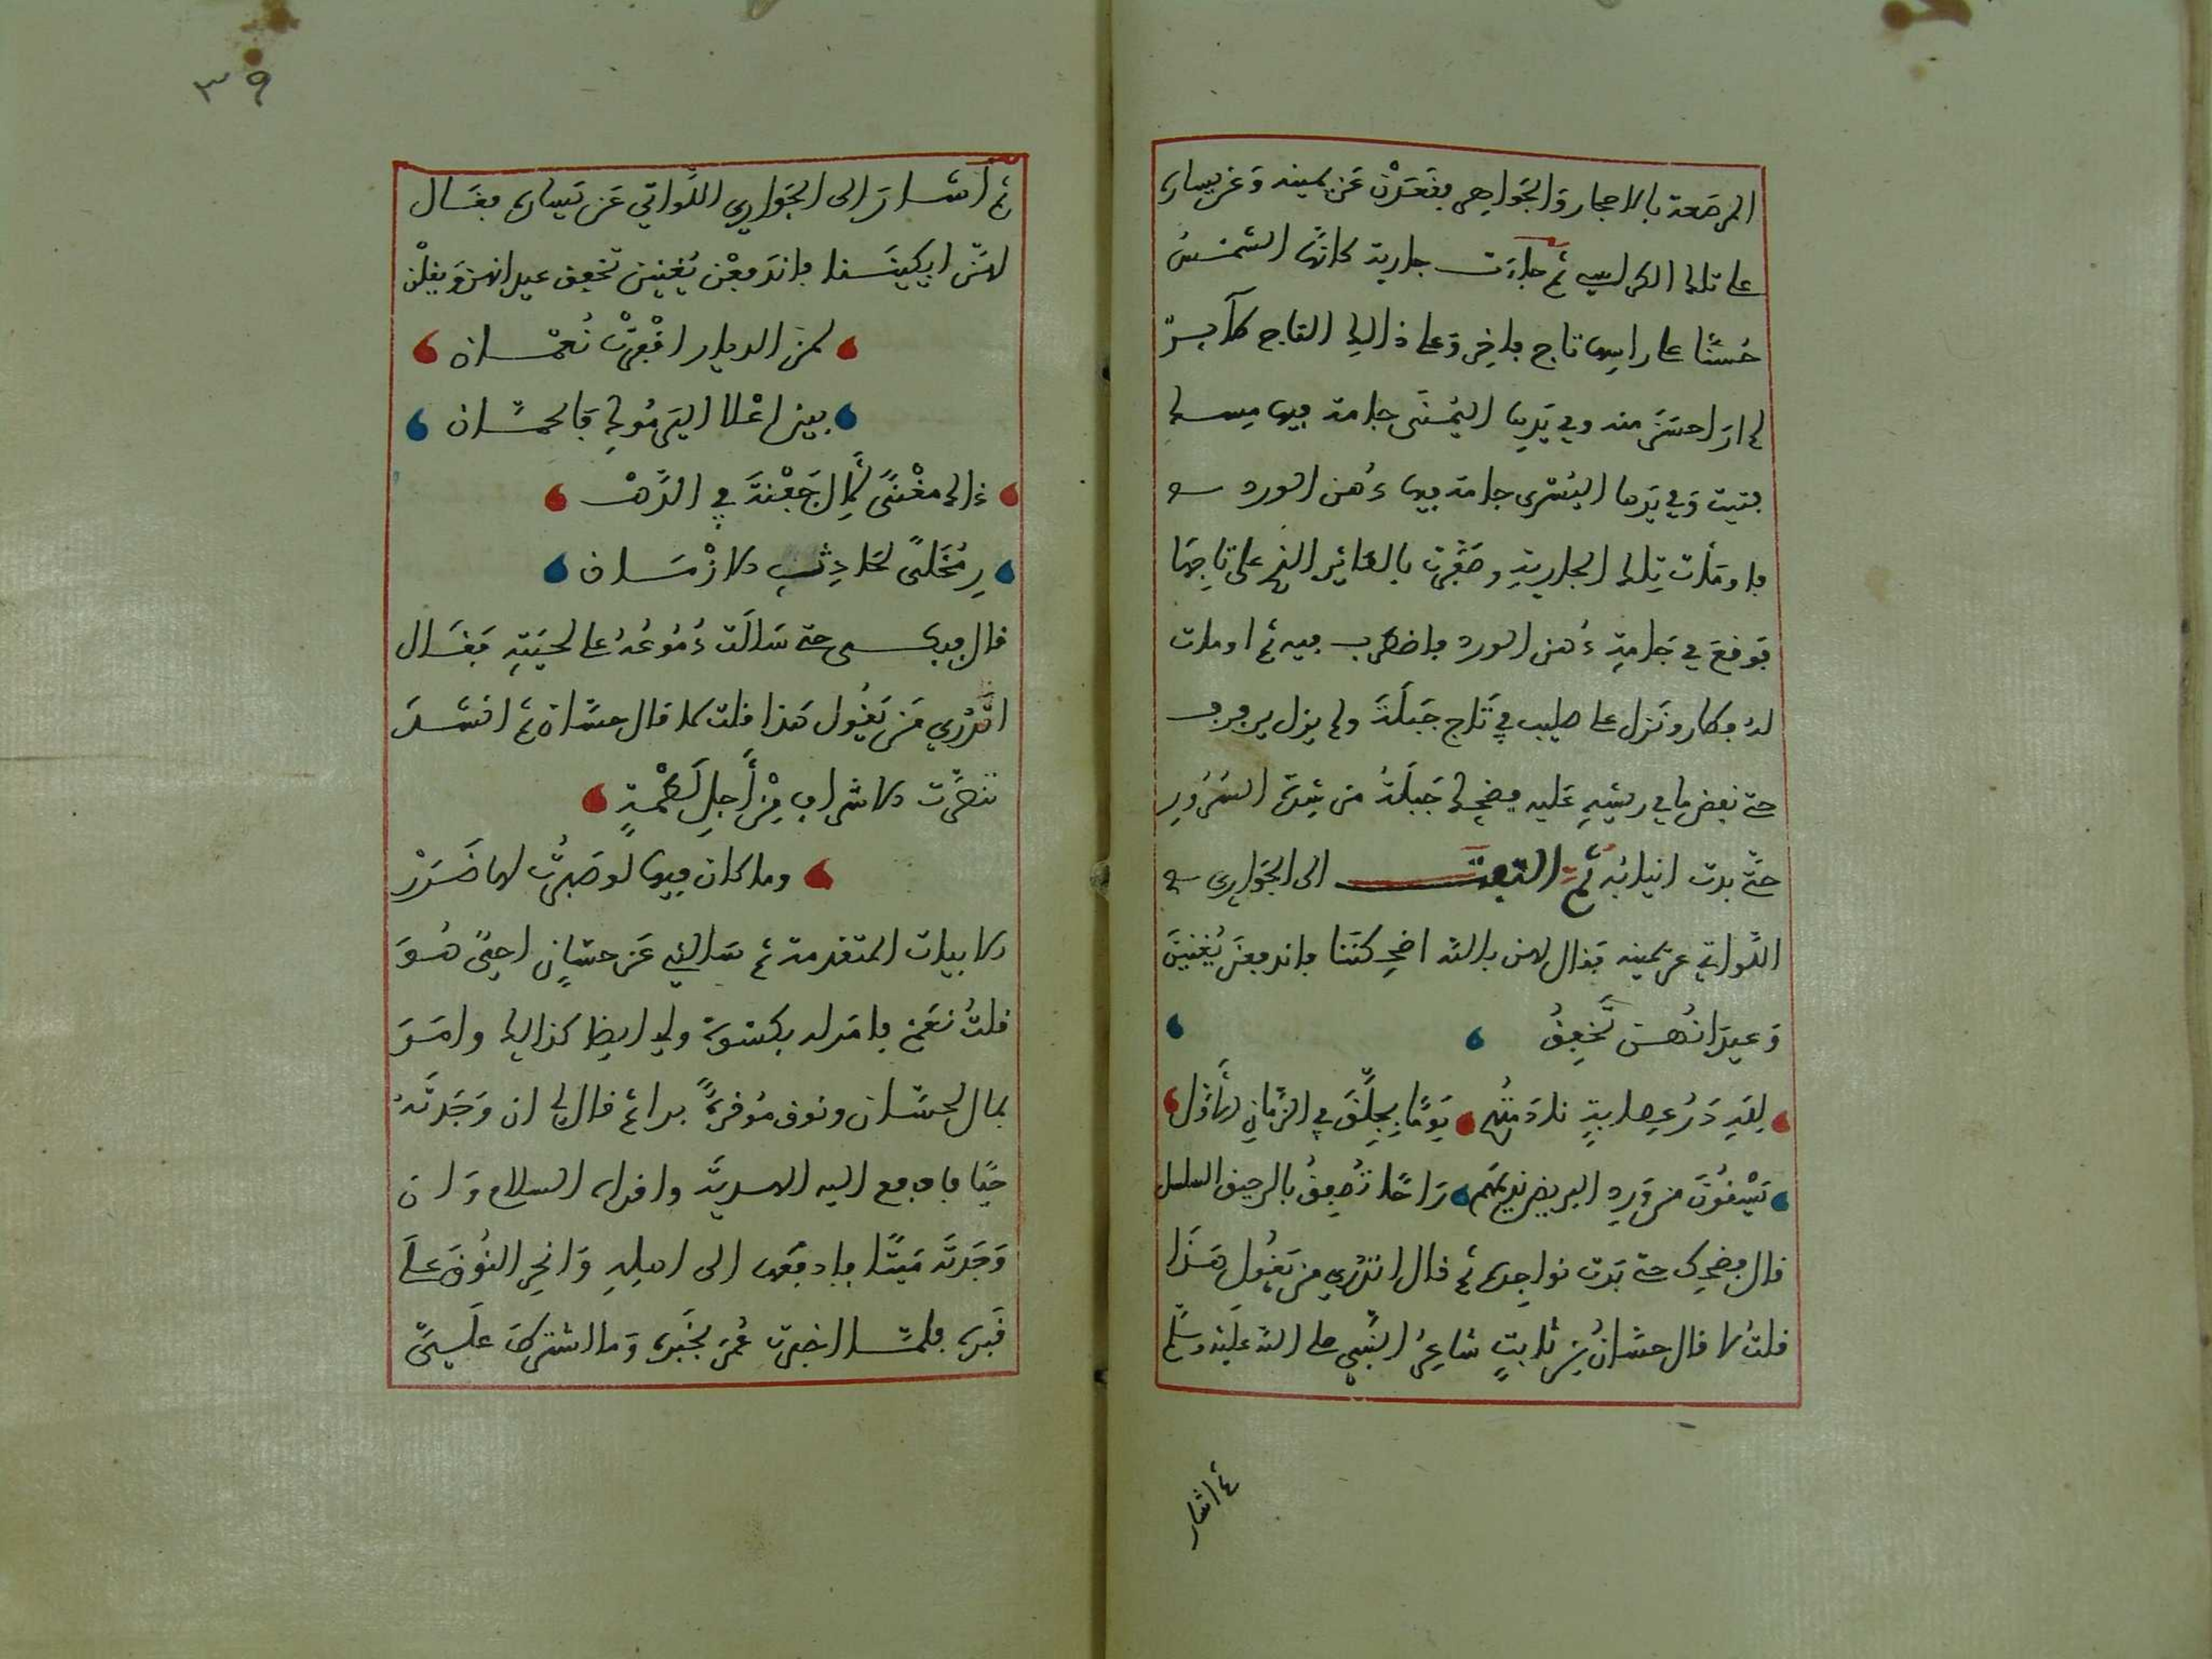 المرصعة بالاحجار والجواهر فقعدن عن يمينه وعن يساره
على تلك الكراسي ثم جاءت جارية كانها الشمس
حسنا على راسها تاج فاخر وعلى ذالك التاج طآير
لم ار احسن منه وفي يدها اليمنى جامة فيها مسك
فتيت وفي يدها اليسرى جامة فيها دهن الورد
فاومأت تلك الجارية وصفرت بالطائر الذي على تاجها
فوقع في جامة دهن الورد فاضطرب فيه ثم اومات
له فطار ونزل على صليب في تاج جبلة ولم يزل يرفرف
حتى نفض ما في ريشه عليه فضحك جبلة من شدة السرور
حتى بدت انيابه ثم التفت الى الجواري
اللواتي عن يمينه فقال لهن بالله اضحكننا فاندفعن يغنين
وعيدانهن تخفق
لله در عصابة نادمتهم يوما بجلق في الزمان الأول
يسقون من ورد البريض نديمهم راحا تصفق بالرحيق السلسل
قال فضحك حتى بدت نواجده ثم قال اتدري من يقول هذا
قلت لا قال حسان بن ثابت شاعر النبي صلى الله عليه وسلم
ثم اشار
٣٩
ثم اشار الى الجواري اللواتي عن يساره فقال
لهن ابكيننا فاندفعن يغنين تخفق عيدانهن ويقلن
لمن الديار اقفرت نعمان
بين اعلا اليرموك فالحمان
ذاك مغنى لآل جفنة في الده
ر محلى لحادث الازمان
قال فبكى حتى سالت دموعه على لحيته فقال
اتدري من يقول هذا قلت لا قال حسان ثم انشد
تنصرت الاشراف من أجل لطمة
وما كان فيها لو صبرت لها ضرر
الابيات المتقدمة ثم سالني عن حسان احي هو
قلت نعم فامر له بكسوة ولي ايضا كذالك وامر
بمال لحسان ونوق موقرة برا ثم قال لي ان وجدته
حيا فادفع اليه الهدية واقراه السلام وان
وجدته ميتا فادفعها الى اهله وانحر النوق على
قبره فلما اخبرت عمر بخبره وما اشترط علي